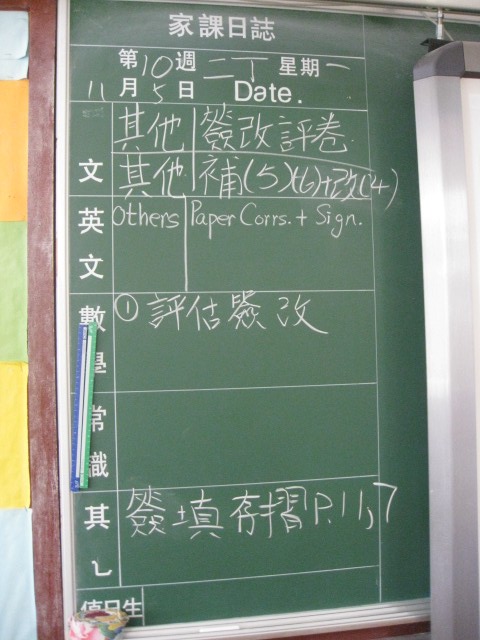 家課日誌
第10週 二丁 星期一
11月5日 Date.
其他 簽改評卷
文 其他 補(5)(6)+改(4)
英文 Others Paper Corrs. + Sign.
數學 ① 評估簽改
常識
其 簽填存摺P.11,7
值日生